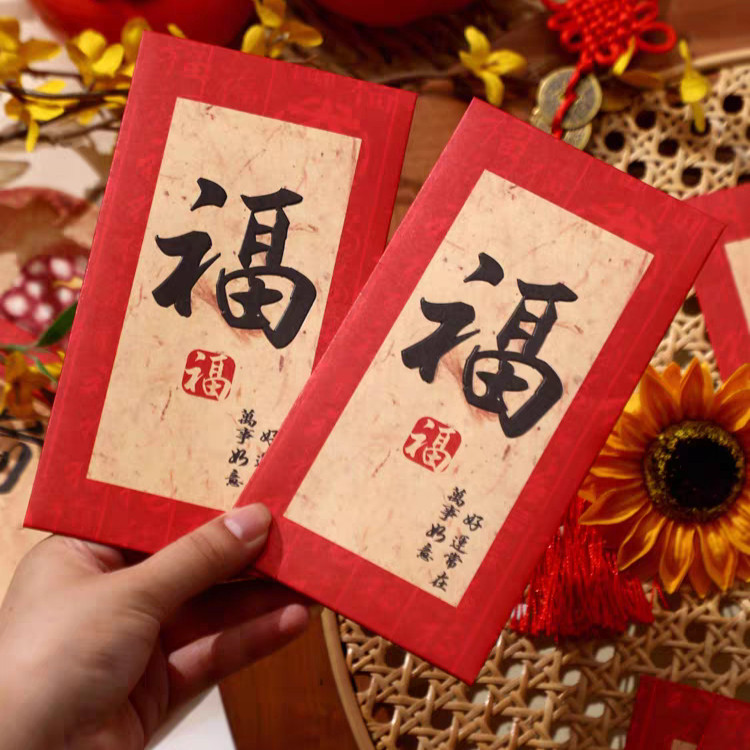 福
福
好
萬事如意
福
福
好運常在
萬事如意